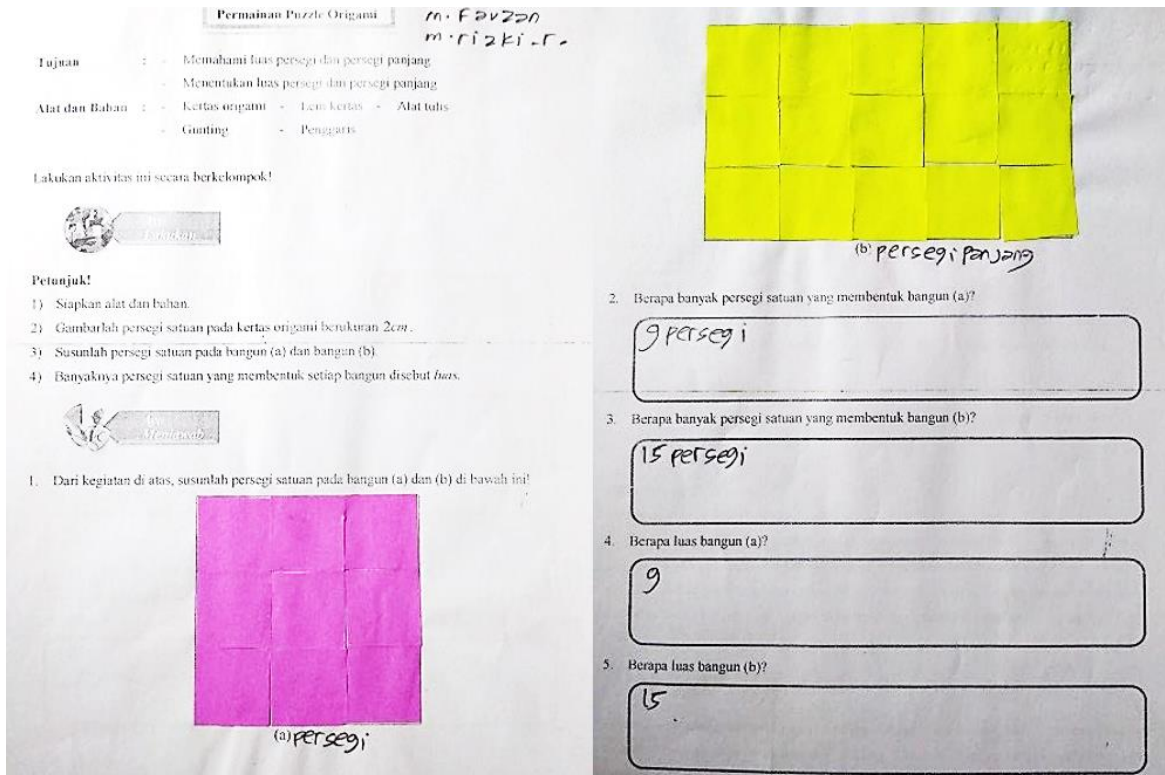 Permainan Puzzle Origami
m. Fauzan
m. rizki. r.
Tujuan : - Memahami luas persegi dan persegi panjang
- Menentukan luas persegi dan persegi panjang
Alat dan Bahan : - Kertas origami - Lem kertas - Alat tulis
- Gunting - Penggaris
Lakukan aktivitas ini secara berkelompok!
Petunjuk!
1) Siapkan alat dan bahan.
2) Gambarlah persegi satuan pada kertas origami berukuran 2cm.
3) Susunlah persegi satuan pada bangun (a) dan bangun (b)
4) Banyaknya persegi satuan yang membentuk setiap bangun disebut luas.
Menjawab
1. Dari kegiatan di atas, susunlah persegi satuan pada bangun (a) dan (b) di bawah ini!
(a) persegi
(b) persegi panjang
2. Berapa banyak persegi satuan yang membentuk bangun (a)?
9 persegi
3. Berapa banyak persegi satuan yang membentuk bangun (b)?
15 persegi
4. Berapa luas bangun (a)?
9
5. Berapa luas bangun (b)?
15